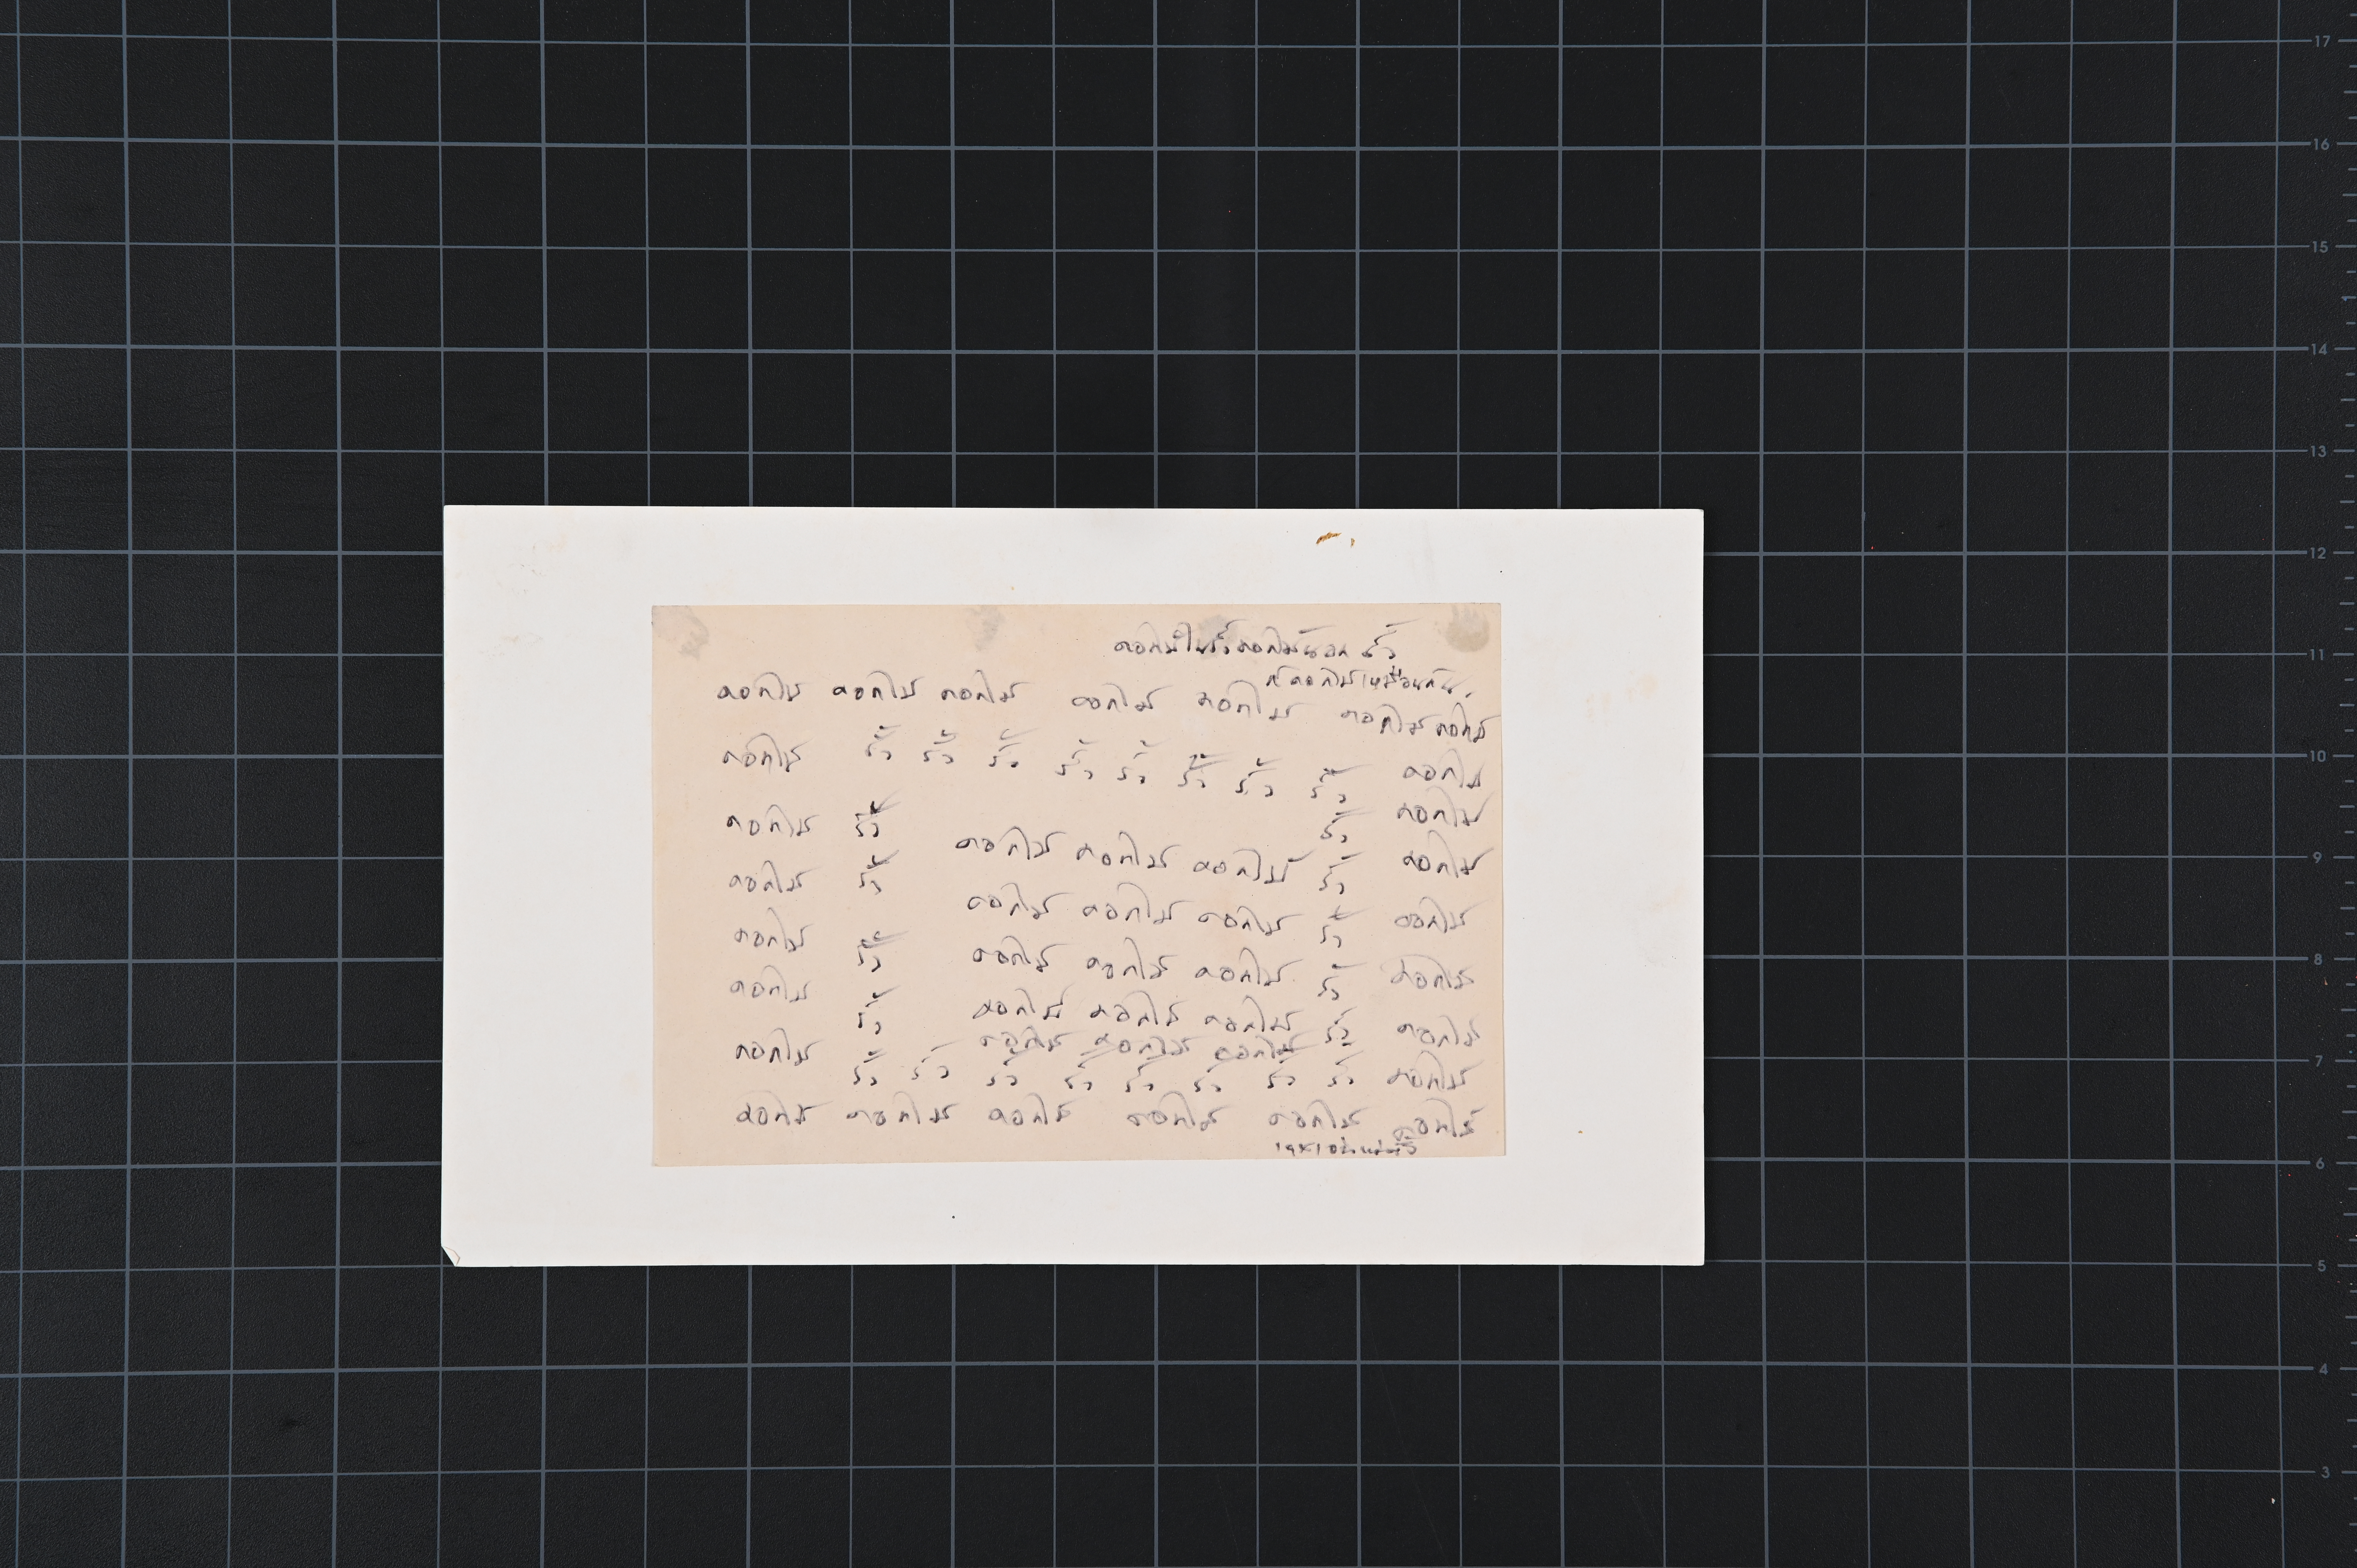 ดอกไม้ในรั้วดอกไม้นอกรั้ว
ก็ดอกไม้เหมือนกัน.
ดอกไม้ ดอกไม้ ดอกไม้ ดอกไม้ ดอกไม้ ดอกไม้ ดอกไม้
ดอกไม้ รั้ว รั้ว รั้ว รั้ว รั้ว รั้ว รั้ว รั้ว ดอกไม้
ดอกไม้ รั้ว รั้ว ดอกไม้
ดอกไม้ รั้ว ดอกไม้ ดอกไม้ ดอกไม้ รั้ว ดอกไม้
ดอกไม้ รั้ว ดอกไม้ ดอกไม้ ดอกไม้ รั้ว ดอกไม้
ดอกไม้ รั้ว ดอกไม้ ดอกไม้ ดอกไม้ รั้ว ดอกไม้
ดอกไม้ ดอกไม้ ดอกไม้ ดอกไม้ รั้ว ดอกไม้
ดอกไม้ ดอกไม้ ดอกไม้
รั้ว รั้ว รั้ว รั้ว รั้ว รั้ว รั้ว รั้ว ดอกไม้
ดอกไม้ ดอกไม้ ดอกไม้ ดอกไม้ ดอกไม้ ดอกไม้
17
16
15
14
13
12
11
10
9
8
7
6
5
4
3